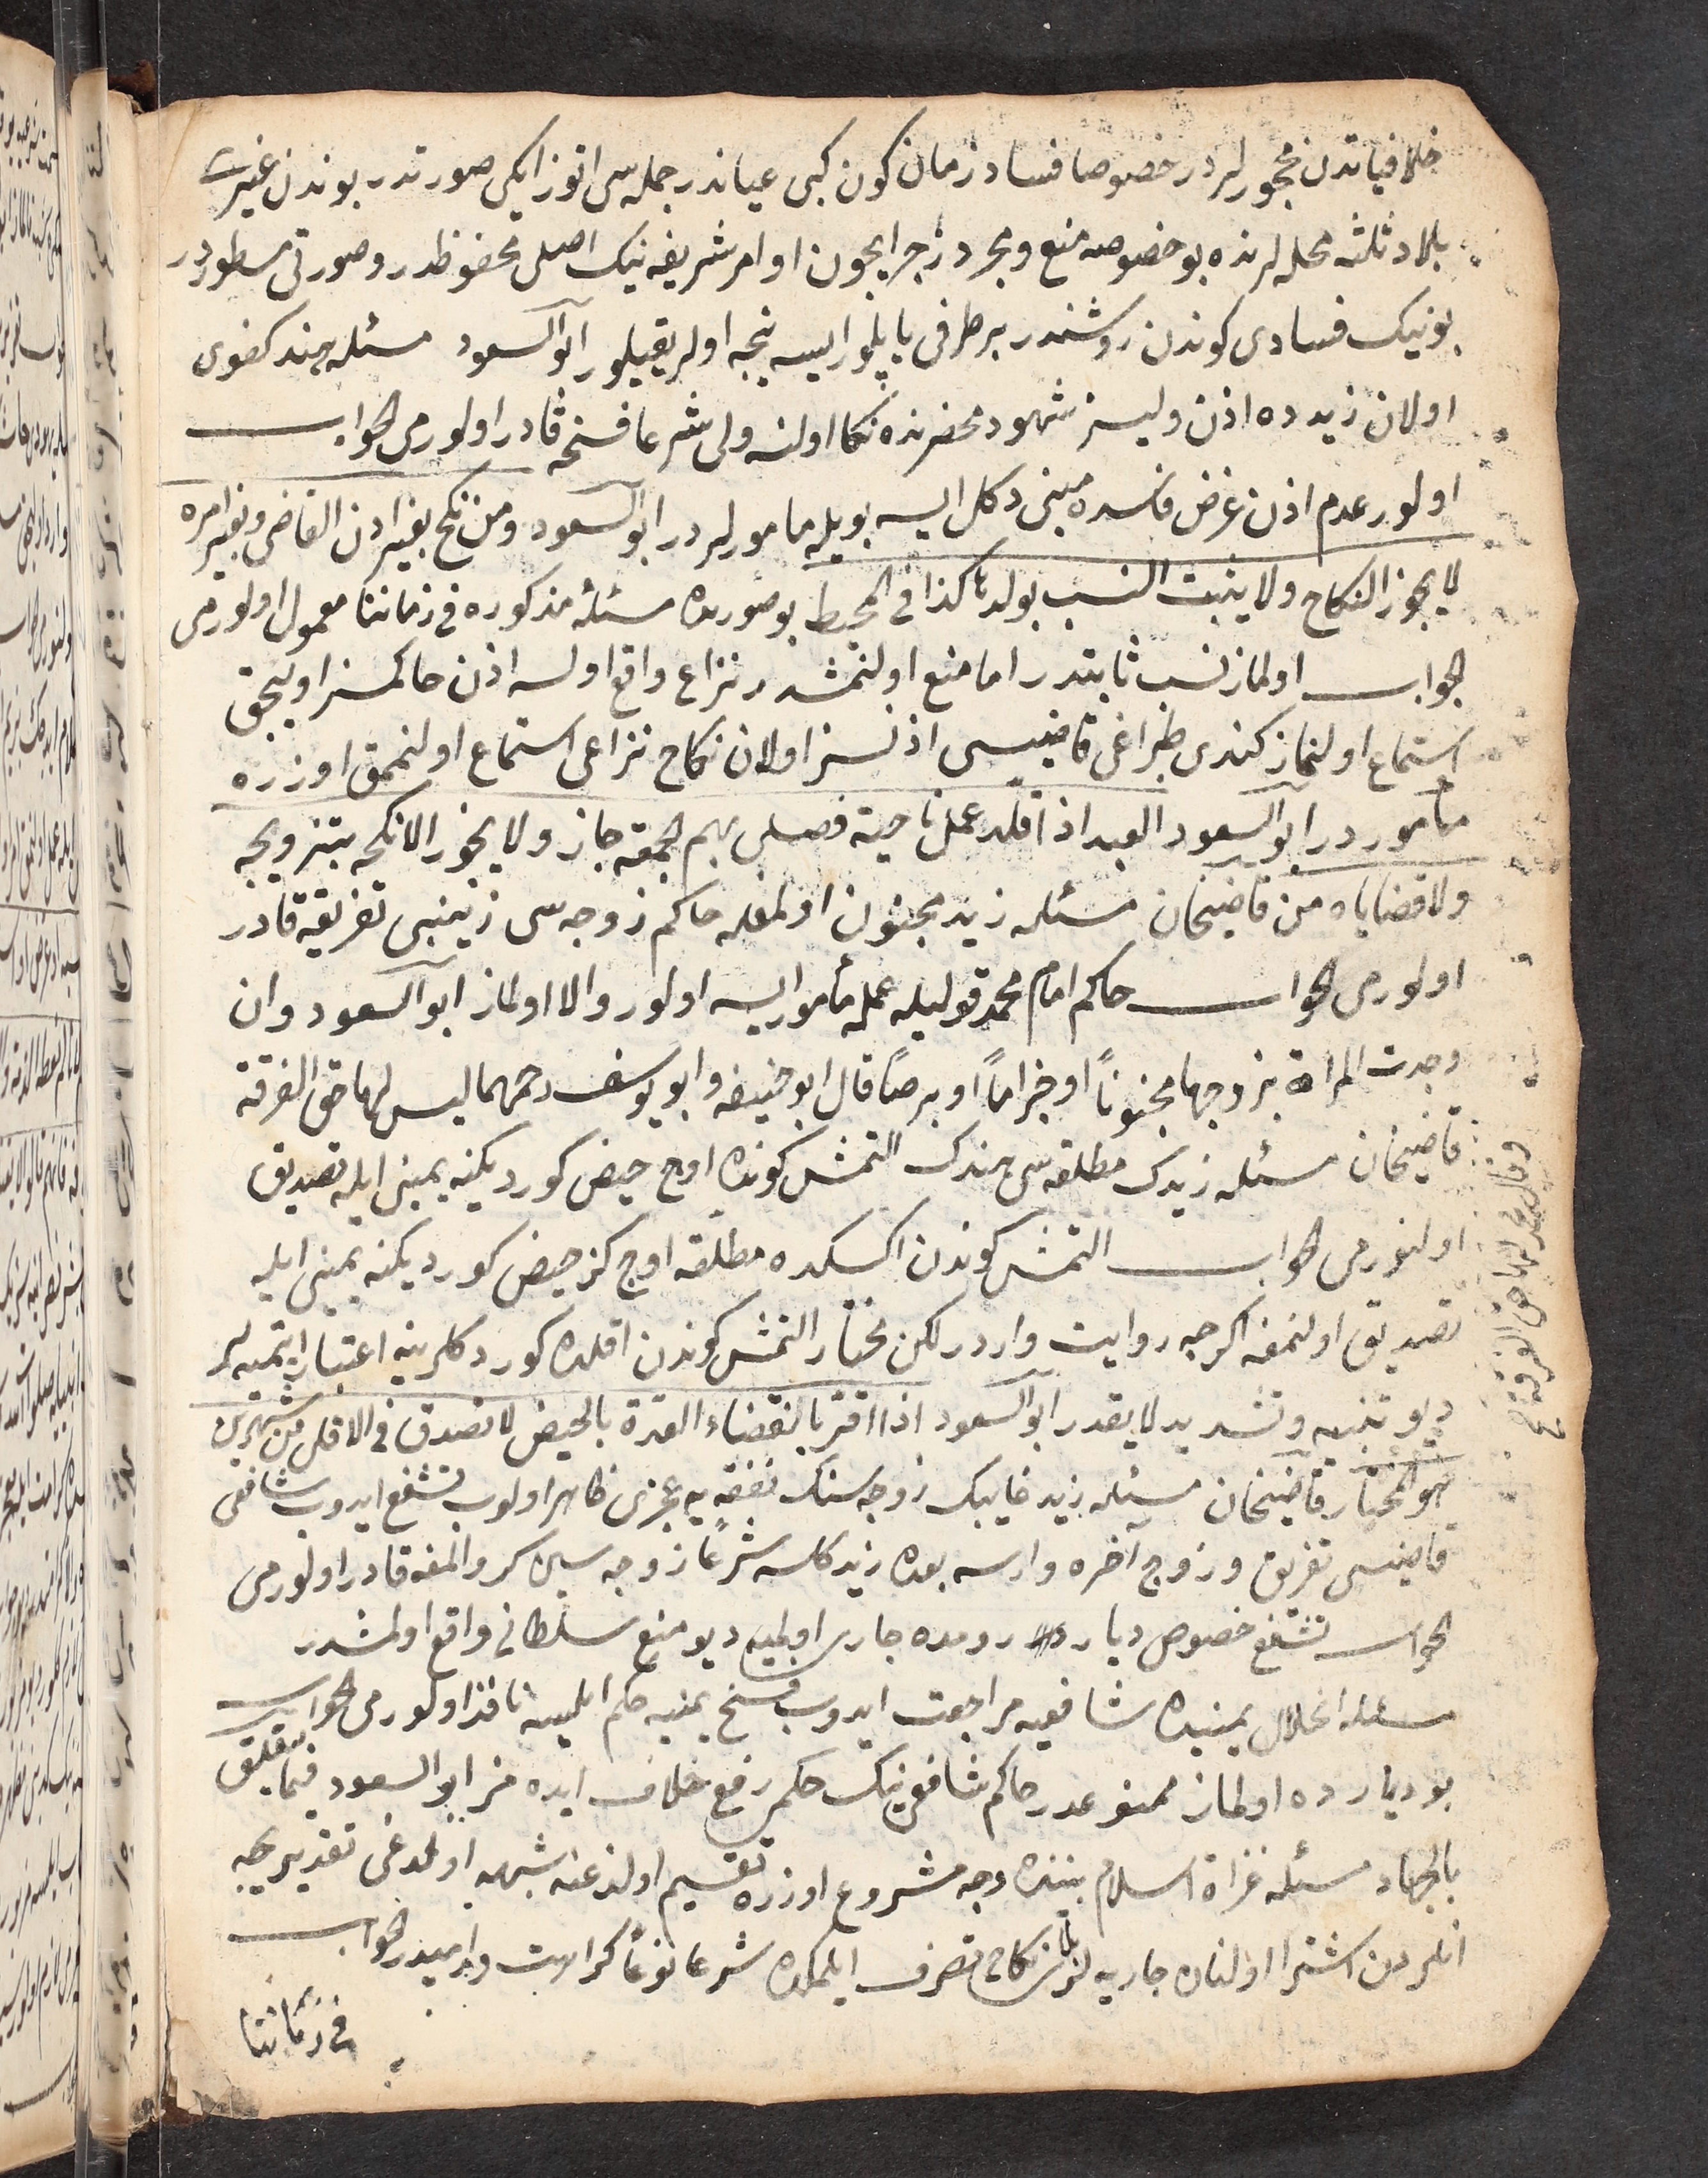 خلافياتدن مججورلردر خصوصا فساد زمان كون كبى عياندر جمله سى اتوز ايكى صورتدر بوندن غيرى
بلاد ثلثه محله لرنده بو خصوصه منع ومجرد زجر ايچون اوامر شريفه نيك اصلى محفوظدر وصورتى مسطوردر
بونيك فسادى كوندن روشندر بر طرفى ياپلور ايسه نيجه اولر يقيلور ابو السعود مسئله هند كفوى
اولان زيده اذن وليسز شهود محضرنده نكاح اولنسه ولى شرعا فسخه قادر اولورمى الجواب
اولور عدم اذن غرض فاسده مبنى دكل ايسه بويله مامورلردر ابو السعود ومن نكح بغير اذن القاضى وبغير امره
لا يجوز النكاح ولا يثبت النسب بولدها كذا فى المحيط بو صورتده مسئلۀ مذكوره فى زماننا معمول اولورمى
الجواب اولماز نسب ثابتدر اما منع اولنمشدر نزاع واقع اولسه اذن حاكمسز اوليجق
استماع اولنماز كندى طپراغى قاضيسى اذنسز اولان نكاح نزاعى استماع اولنممق اوزره
مأموردر ابو السعود العبد اذا قلد عمل ناحية فصلى بهم الجمعة جاز ولا يجوز الانكحه بتزويجه
ولا قضاياه من قاضيخان مسئله زيد مجنون اولمغله حاكم زوجه سى زينبى تفريقه قادر
اولورمى الجواب حاكم امام محمد قوليله عمله مأمور ايسه اولور والا اولماز ابو السعود وان
وجدت المراة بزوجها مجنوناً او جزاماً او برصاً قال ابو حنيفه وابو يوسف رحمهما ليس لها حق الفرقة
قاضيخان مسئله زيدك مطلقه سى هندك التمش كونده اوچ حيض كورديكنه يمينى ايله تصديق
اولنورمى الجواب التمش كوندن اكسكده مطلقه اوچ كز حيض كورديكنه يمينى ايله
تصديق اولنمغه اكرجه روايت واردر لكن مختار التمش كوندن اقلده كوردكلرينه اعتبار ايتميه لر
ديو تنبيه وتشديد لايقدر ابو السعود اذا اقرت بانقضاء العدة بالحيض لا تصدق فى الاقل من شهرين
هو المختار قاضيخان مسئله زيد غايبك زوجه سنك نفقه يه عجزى ظاهر اولوب تشفع ايدوب شافعى
قاضيسى تفريق و زوج آخره وارسه بعده زيد كلسه شرعاً زوجه سين كرو المغه قادر اولورمى
الجواب تشفع خصوص ديار رومده جارى اولميه ديو منع سلطانى واقع اولمشدر
مسئله انحلال يمينده شافعيه مراجعت ايدوب فسخ يمنيه حكم ايلسه نافذ اولورمى الجواب
بو ديارده اولماز ممنوعدر حاكم شافعينك حكمى رفع خلاف ايده مز ابو السعود فيما يتعلق
بالجهاد مسئله غزاة اسلام بيننده وجه مشروع اوزره تقسيم اولندغنه شبهه اولدغى تقديرجه
انلردن اشترا اولنان جاريه لرى بلا نكاح تصرف ايلمكده شرعا نوعاً كراهت وارميدر الجواب
فى زماننا
وقال محمد لها حق الفرقة صح